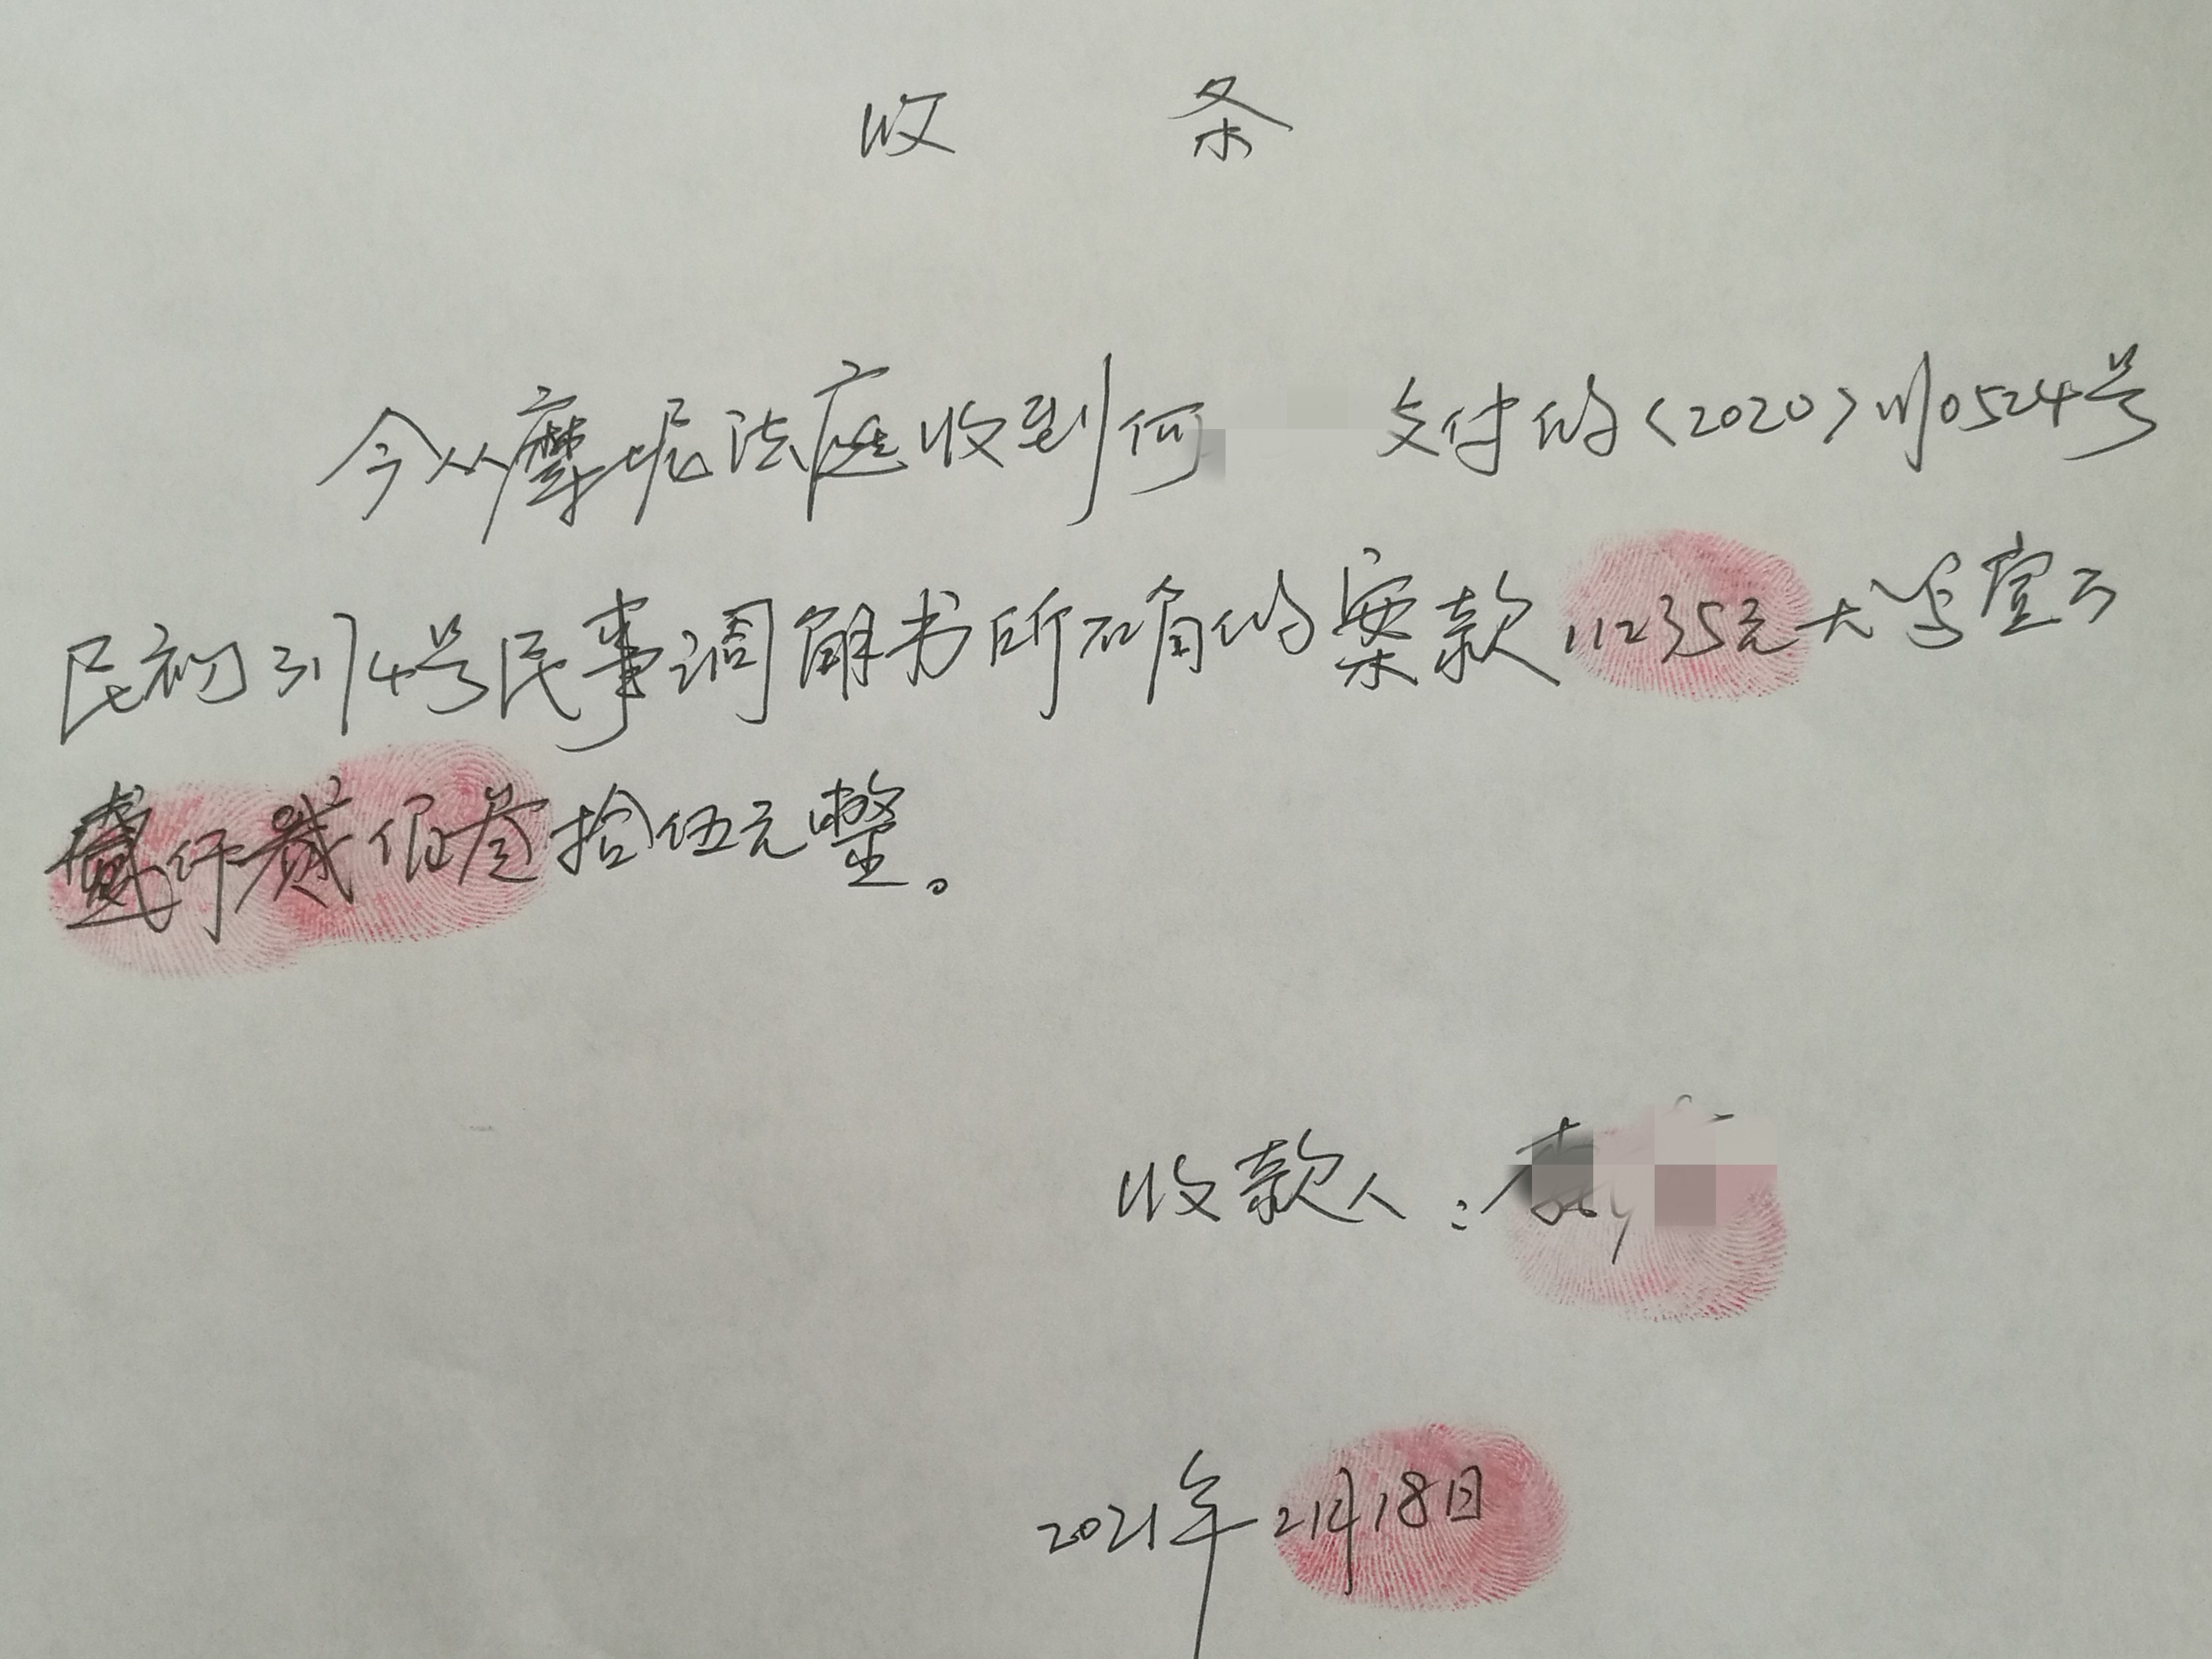 收 条
今从摩尼法庭收到何 交付的<2020>川0524号
民初3174号民事调解书所确的案款11235元大写壹万
壹仟贰佰叁拾伍元整。
收款人:李
2021年2月18日